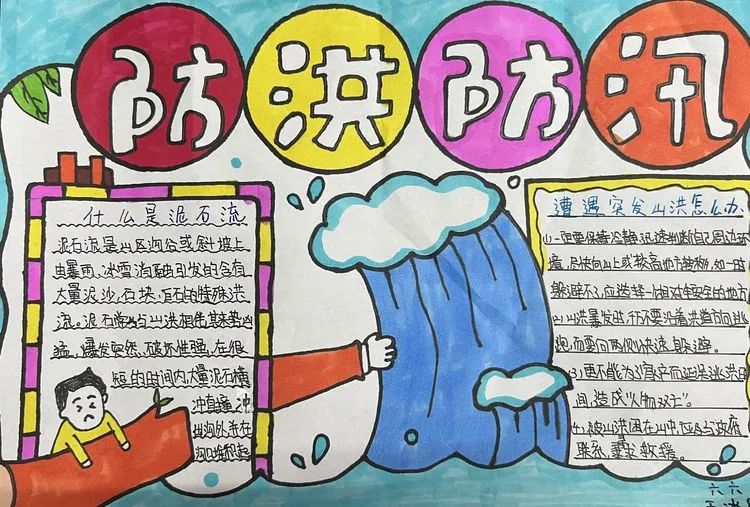 防洪防汛
什么是泥石流
泥石流是山区沟谷或斜坡上
由暴雨、冰雪消融引发的含有
大量泥沙、石块、巨石的特殊洪
流。泥石流常与山洪相伴,其来势凶
猛,爆发突然,破坏性强,在很
短的时间内,大量泥石横
冲直撞,冲
出沟外,并在
沟口堆积起
遭遇突发山洪怎么办
(1)一定要保持冷静,迅速判断自己周边环
境,尽快向山上或较高地方转移,如一时
躲避不了,应选择一个相对安全的地方
(2)山洪暴发时,千万不要沿着洪道方向逃
跑,而要向两侧快速躲避。
(3)更不能为了财产而延误逃洪时
间,造成“人物双亡”。
(4)被山洪困在山中,应及与政府
联系,寻求救援。
六六